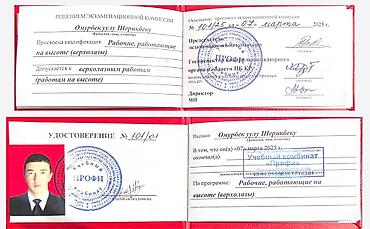 РЕШЕНИЕМ ЭКЗАМЕНАЦИОННОЙ КОМИССИИ
Омурбек уулу Шеринбеку
(Фамилия, имя, отчество)
Присвоена квалификация Рабочие, работающие
на высоте (верхолазы)
Допускается к верхолазным работам
(работам на высоте)
Основание: протокол экзаменационной комиссии
№ 101/25 от «07» марта 2025 г.
Председатель
экзаменационной
органа
Директор
МП
ПРОФИ
УДОСТОВЕРЕНИЕ № 101/01
Учебный
ПРОФИ
Выдано Омурбек уулу Шеринбеку
(Фамилия, имя, отчество)
В том, что он(а) «07» марта 2025 г.
окончил(а) Учебный комбинат
«Профи»
По программе: Рабочие, работающие на
высоте (верхолазы)